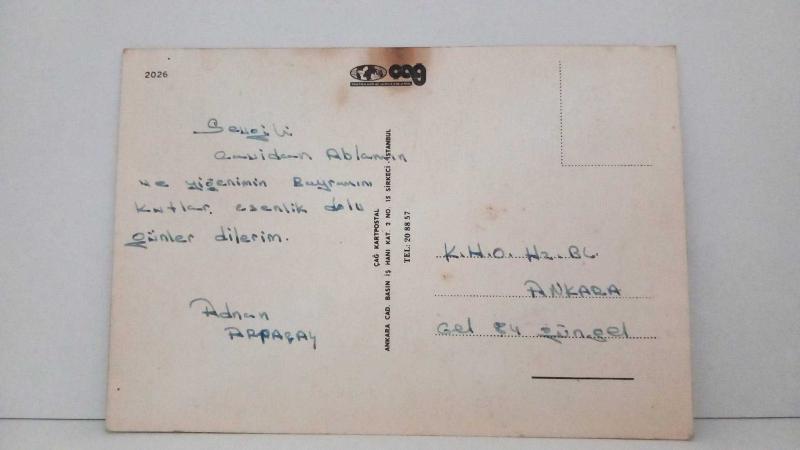 2026
çağ
Sevgili
Cavidan Ablamın
ve yiğenimin Bayramını
kutlar, esenlik dolu
günler dilerim.
Adnan
ARPAÇAY
ÇAĞ KARTPOSTAL
ANKARA CAD. BASIN İŞ HANI KAT. 2 NO. 15 SİRKECİ-İSTANBUL
TEL: 20 88 57
K.H.O. Hz. BL
ANKARA